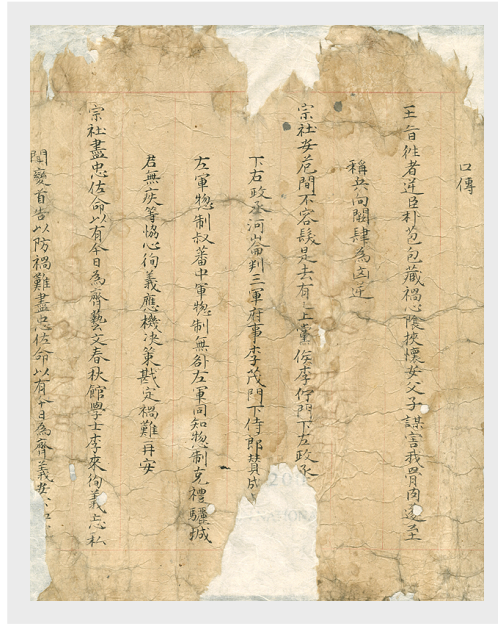 口傳
王旨徃者逆臣朴苞包藏禍心陰挾懷安父子謀害我骨肉遂至
稱兵向闕肆爲凶逆
宗社安危間不容髮是去有上黨侯李佇門下左政丞
下右政丞河崙判三軍府事李茂門下侍郎賛成
左軍摠制叔蕃中軍摠制無咎左軍同知摠制克禮驪城
君無疾等恊心徇義應機决策戡定禍難再安
宗社盡忠佐命以有今日爲齊藝文春秋館學士李來徇義忘私
聞變首告以防禍難盡忠佐命以有今日爲齊義安